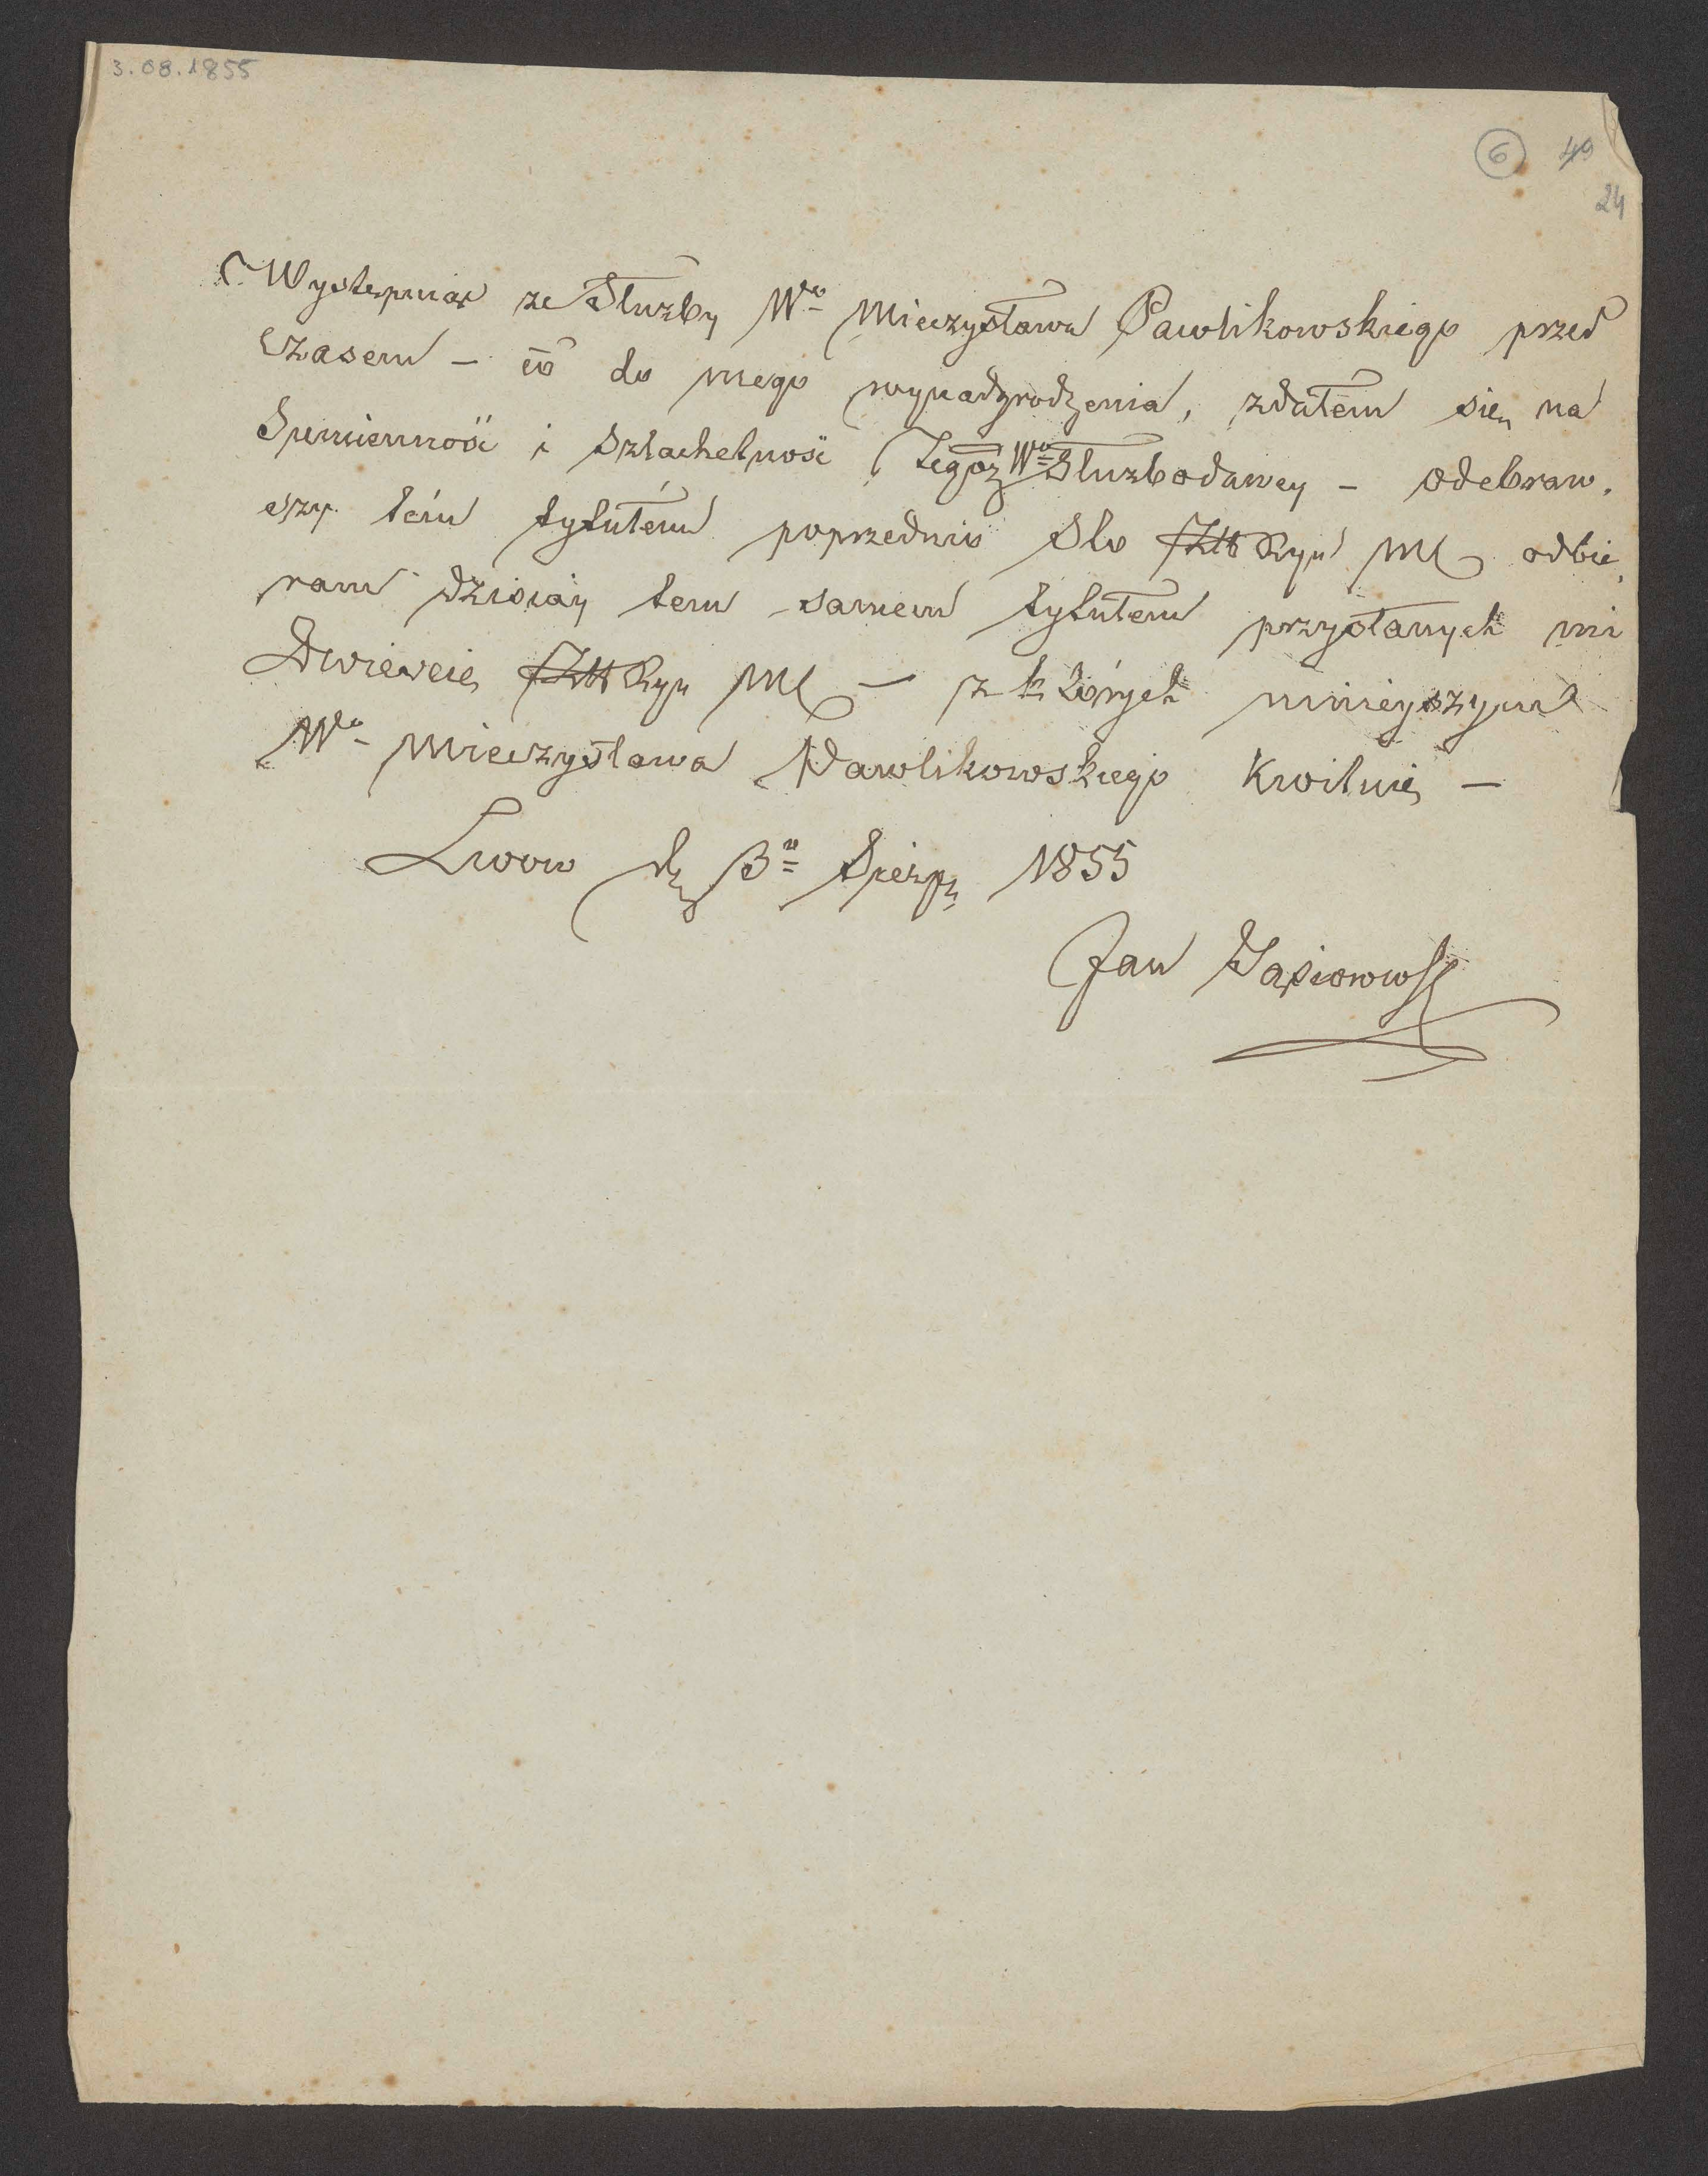 3.08.1855
6 49
24
Wystempuiąc ze Służby Wo Mieczysława Pawlikowskiego przed
czasem – co do mego wynadgrodzenia, zdałem się na
Sumienność i szlachetność Tegóż Wo Służbodawcy – odebraw-
szy tém tytułém poprzednio Sto Złt Ryn MC odbie-
ram dzisiay tem samem tytułem przysłanych mi
Dwieście Złt Ryn MC – z których ninieyszym
Wo Mieczysława Pawlikowskiego Kwituię –
Lwow d. 3o Sierp. 1855
Jan